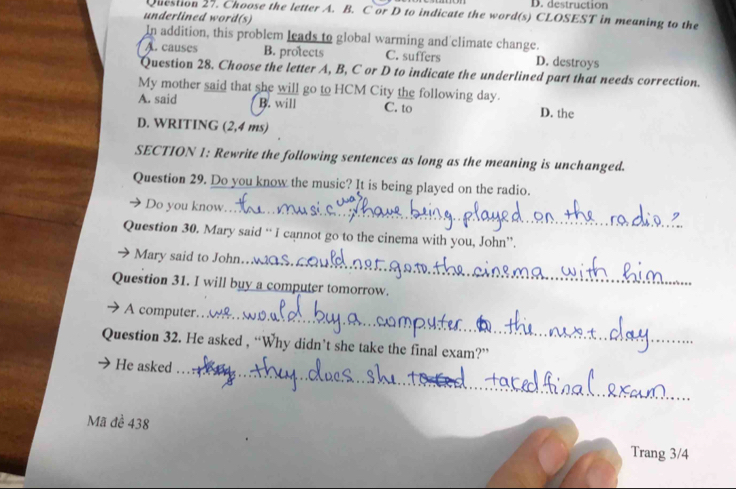 D. destruction
Question 27. Choose the letter A. B. C or D to indicate the word(s) CLOSEST in meaning to the
underlined word(s)
In addition, this problem leads to global warming and climate change.
A. causes B. protects C. suffers D. destroys
Question 28. Choose the letter A, B, C or D to indicate the underlined part that needs correction.
My mother said that she will go to HCM City the following day.
A. said B. will C. to D. the
D. WRITING (2,4 ms)
SECTION 1: Rewrite the following sentences as long as the meaning is unchanged.
Question 29. Do you know the music? It is being played on the radio.
→ Do you know... the music was have being played on the radio?
Question 30. Mary said “ I cannot go to the cinema with you, John”.
→ Mary said to John... was could not go to the cinema with him
Question 31. I will buy a computer tomorrow.
→ A computer... we would buy a computer the next day
Question 32. He asked , “Why didn’t she take the final exam?”
→ He asked ... they does she taced final exam
Mã đề 438
Trang 3/4